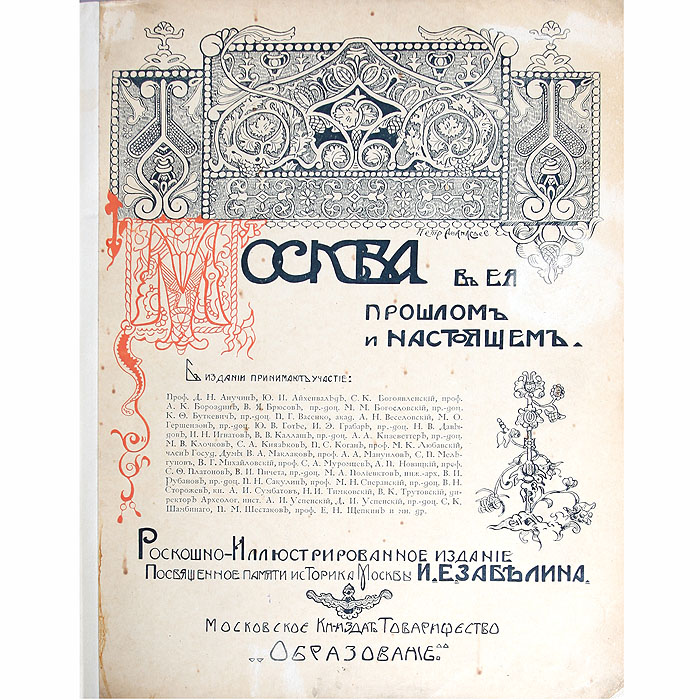 МОСКВА въ ея
прошломъ
и настоящемъ.
Въ изданіи принимаютъ участіе:
Проф. Д. Н. Анучинъ, Ю. И. Айхенвальдъ, С. К. Богоявленскій, проф.
А. К. Бороздинъ, В. Я. Брюсовъ, пр.-доц. М. М. Богословскій, пр.-доц.
К. Ѳ. Буткевичъ, пр.-доц. П. Г. Васенко, акад. А. Н. Веселовскій, М. О.
Гершензонъ, пр.-доц. Ю. В. Готье, И. Э. Грабарь, пр.-доц. Н. В. Давы-
довъ, И. Н. Игнатовъ, В. В. Каллашъ, пр.-доц. А. А. Кизеветтеръ, пр.-доц.
М. В. Клочковъ, С. А. Князьковъ, П. С. Коганъ, проф. М. К. Любавскій,
членъ Госуд. Думы В. А. Маклаковъ, проф. А. А. Мануиловъ, С. П. Мель-
гуновъ, В. Г. Михайловскій, проф. С. А. Муромцевъ, Д. П. Новицкій, проф.
С. Ѳ. Платоновъ, В. И. Пичета, пр.-доц. М. А. Поліевктовъ, инж.-арх. В. И.
Рубановъ, пр.-доц. П. Н. Сакулинъ, проф. М. Н. Сперанскій, пр.-доц. В. Н.
Сторожевъ, кн. А. И. Сумбатовъ, Н. И. Тимковскій, В. К. Трутовскій, ди-
ректоръ Археолог. инст. А. И. Успенскій, Д. И. Успенскій, пр.-доц. С. К.
Шамбинаго, П. М. Шестаковъ, проф. Е. Н. Щепкинъ и мн. др.
Роскошно-Иллюстрированное изданіе
Посвященное памяти историка Москвы И. Е. Забѣлина.
Московское Кн-издатъ Товарищество
„Образованіе“